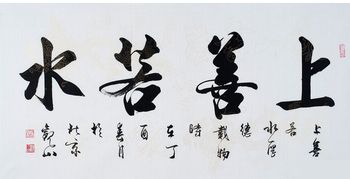 上善若水
上善
若
水厚
德
載物
時
在丁
酉
於
北京